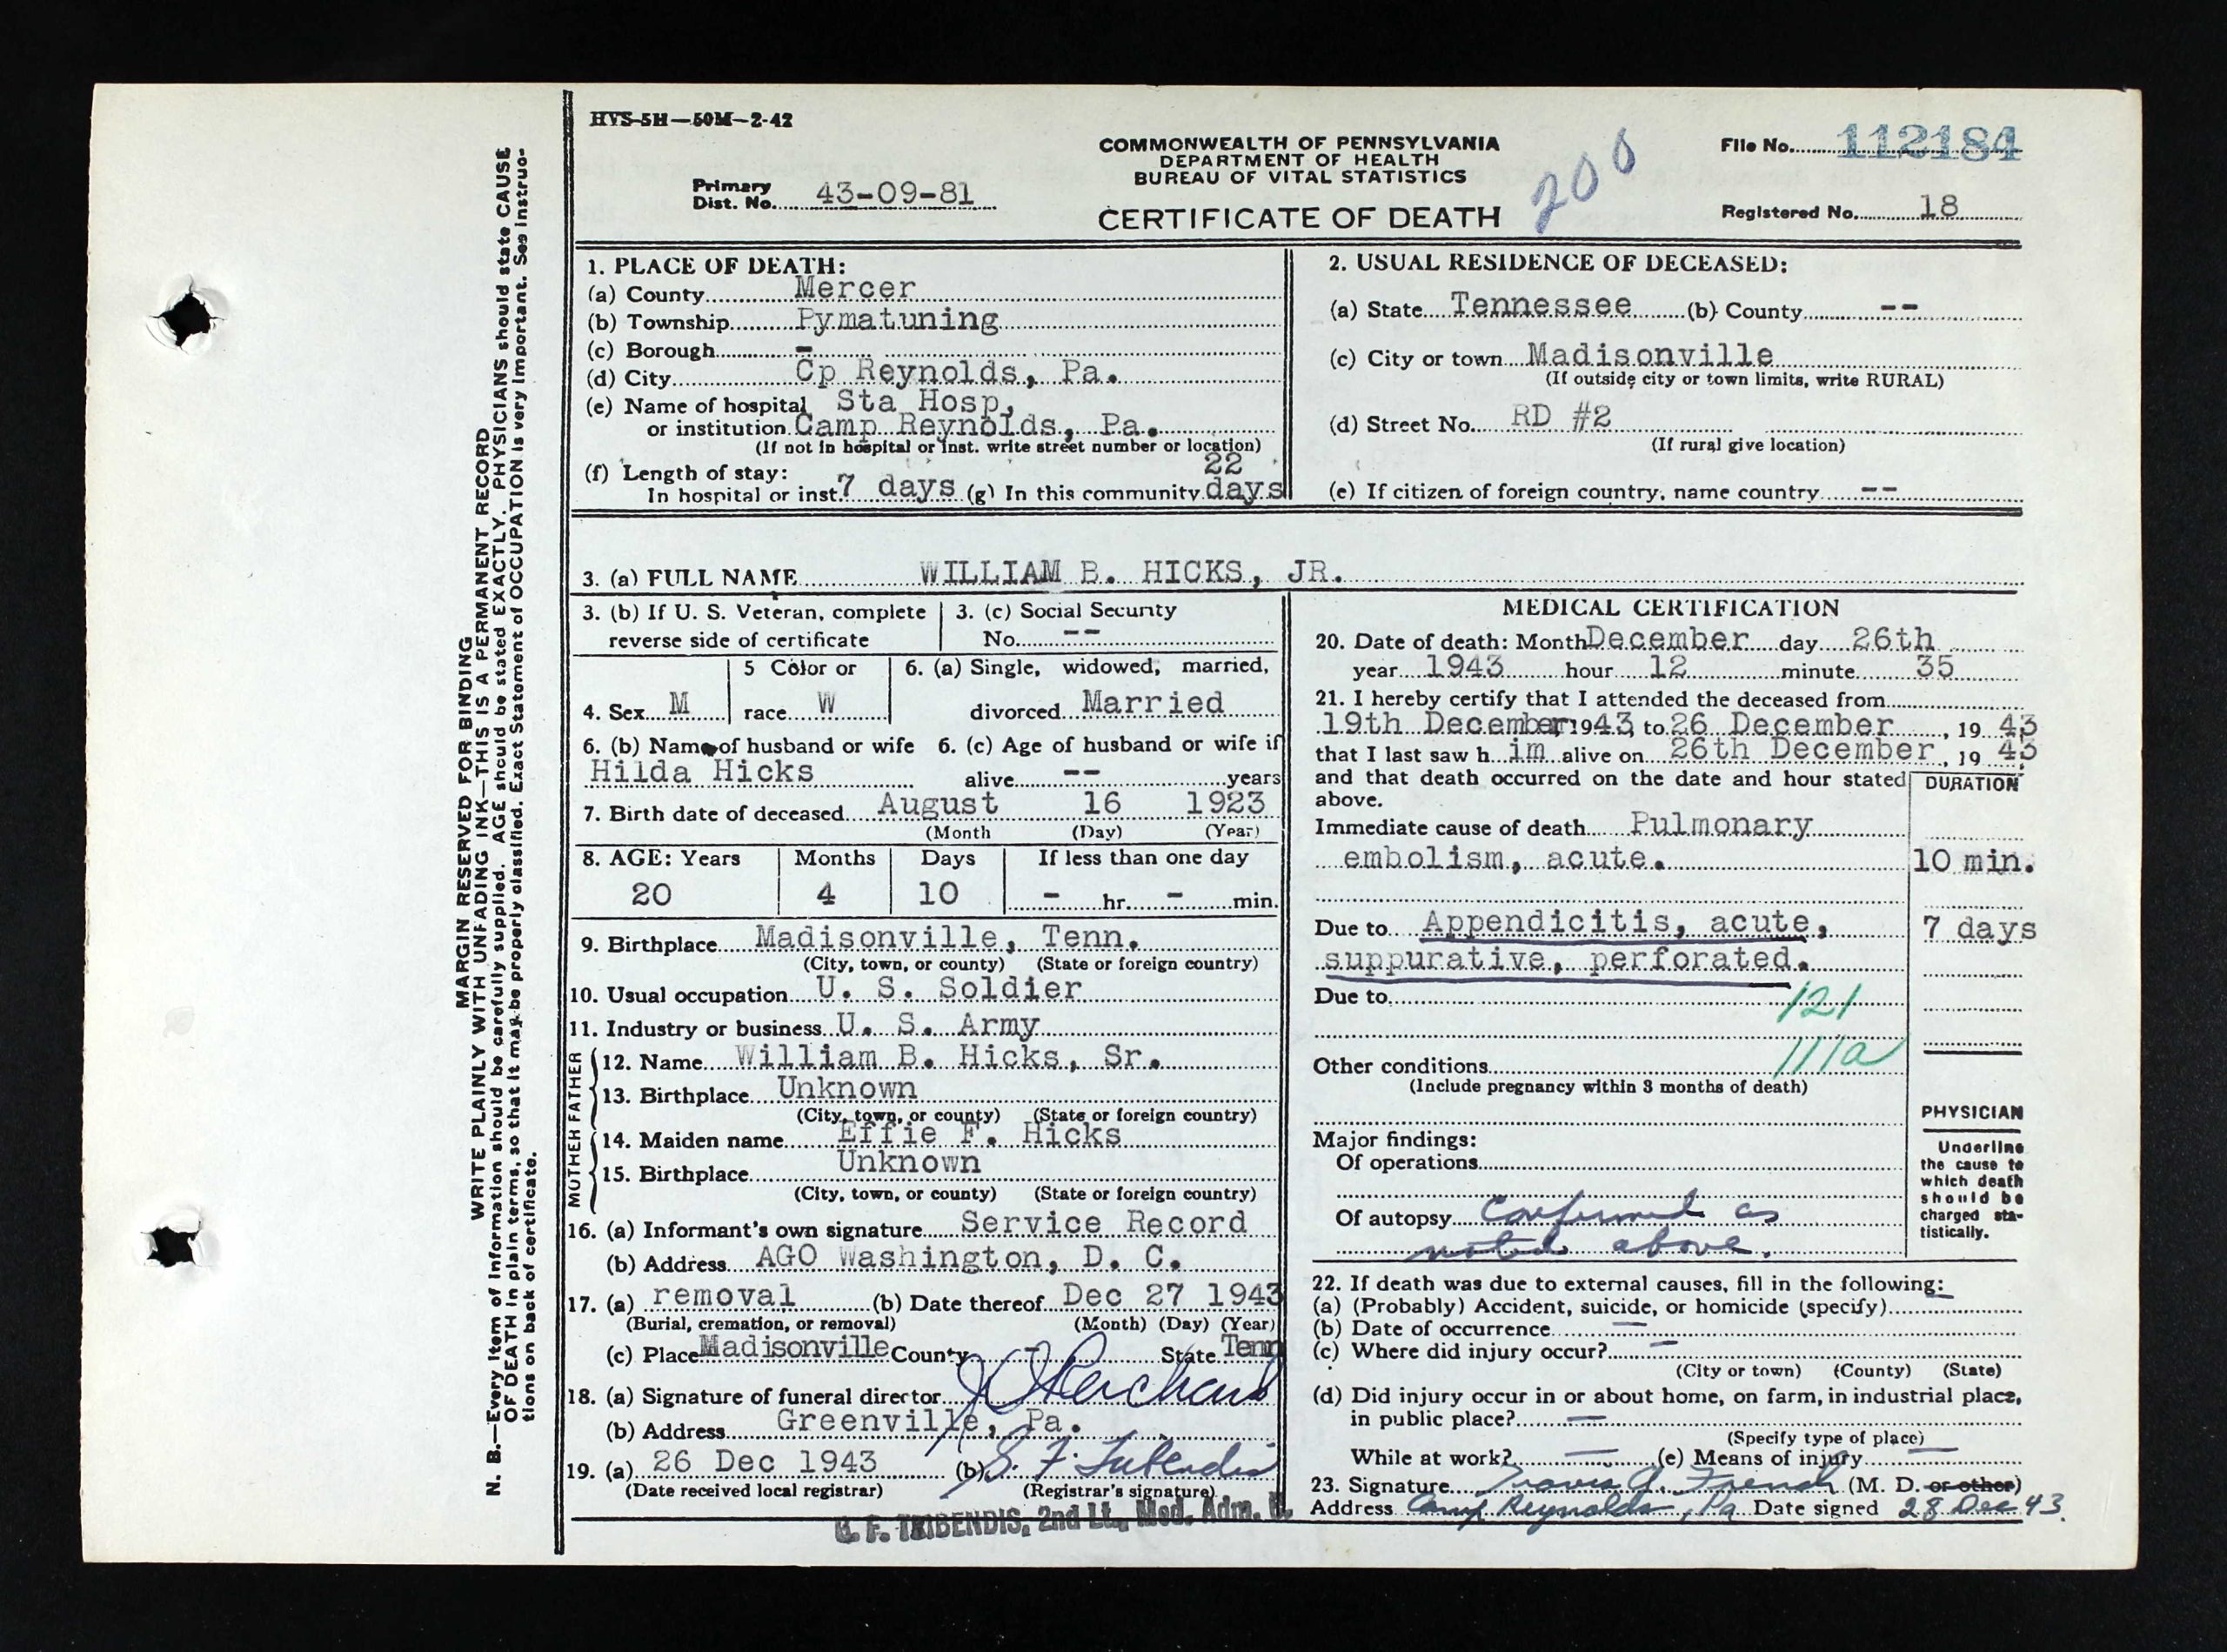 HVS-5H—50M—2-42
COMMONWEALTH OF PENNSYLVANIA
DEPARTMENT OF HEALTH
BUREAU OF VITAL STATISTICS
CERTIFICATE OF DEATH
200
File No. 112184
Primary
Dist. No. 43-09-81
Registered No. 18
MARGIN RESERVED FOR BINDING
WRITE PLAINLY WITH UNFADING INK—THIS IS A PERMANENT RECORD
N. B.—Every item of information should be carefully supplied. AGE should be stated EXACTLY. PHYSICIANS should state CAUSE
OF DEATH in plain terms, so that it may be properly classified. Exact Statement of OCCUPATION is very important. See instruc-
tions on back of certificate.
1. PLACE OF DEATH:
(a) County Mercer
(b) Township Pymatuning
(c) Borough -
(d) City Cp Reynolds, Pa.
(e) Name of hospital Sta Hosp,
or institution Camp Reynolds, Pa.
(If not in hospital or inst. write street number or location)
(f) Length of stay: 22
In hospital or inst. 7 days (g) In this community days
2. USUAL RESIDENCE OF DECEASED:
(a) State Tennessee (b) County --
(c) City or town Madisonville
(If outside city or town limits, write RURAL)
(d) Street No. RD #2
(If rural give location)
(e) If citizen of foreign country, name country --
3. (a) FULL NAME WILLIAM B. HICKS, JR.
3. (b) If U. S. Veteran, complete
reverse side of certificate
3. (c) Social Security
No. --
4. Sex M
5 Color or
race W
6. (a) Single, widowed, married,
divorced Married
6. (b) Name of husband or wife
Hilda Hicks
6. (c) Age of husband or wife if
alive -- years
7. Birth date of deceased August 16 1923
(Month (Day) (Year)
8. AGE: Years Months Days If less than one day
20 4 10 - hr. - min.
9. Birthplace Madisonville, Tenn.
(City, town, or county) (State or foreign country)
10. Usual occupation U. S. Soldier
11. Industry or business U. S. Army
FATHER
12. Name William B. Hicks, Sr.
13. Birthplace Unknown
(City, town, or county) (State or foreign country)
MOTHER
14. Maiden name Effie F. Hicks
15. Birthplace Unknown
(City, town, or county) (State or foreign country)
16. (a) Informant's own signature Service Record
(b) Address AGO Washington, D. C.
17. (a) removal (b) Date thereof Dec 27 1943
(Burial, cremation, or removal) (Month) (Day) (Year)
(c) Place Madisonville County - State Tenn
18. (a) Signature of funeral director
(b) Address Greenville, Pa.
19. (a) 26 Dec 1943 (b)
(Date received local registrar) (Registrar's signature)
2nd Lt., Med. Adm. C.
MEDICAL CERTIFICATION
20. Date of death: Month December day 26th
year 1943 hour 12 minute 35
21. I hereby certify that I attended the deceased from
19th December, 1943, to 26 December, 19 43
that I last saw h im alive on 26th December, 19 43
and that death occurred on the date and hour stated
above.
DURATION
Immediate cause of death Pulmonary
embolism, acute. 10 min.
Due to Appendicitis, acute, 7 days
suppurative, perforated.
Due to
121
Other conditions 111a
(Include pregnancy within 3 months of death)
Major findings:
Of operations
Of autopsy Confirmed as
noted above.
PHYSICIAN
Underline
the cause to
which death
should be
charged sta-
tistically.
22. If death was due to external causes, fill in the following:
(a) (Probably) Accident, suicide, or homicide (specify)
(b) Date of occurrence —
(c) Where did injury occur? —
(City or town) (County) (State)
(d) Did injury occur in or about home, on farm, in industrial place,
in public place? —
(Specify type of place)
While at work? — (e) Means of injury —
23. Signature Travis J. French (M. D. or other)
Address Camp Reynolds, Pa. Date signed 28 Dec 43.